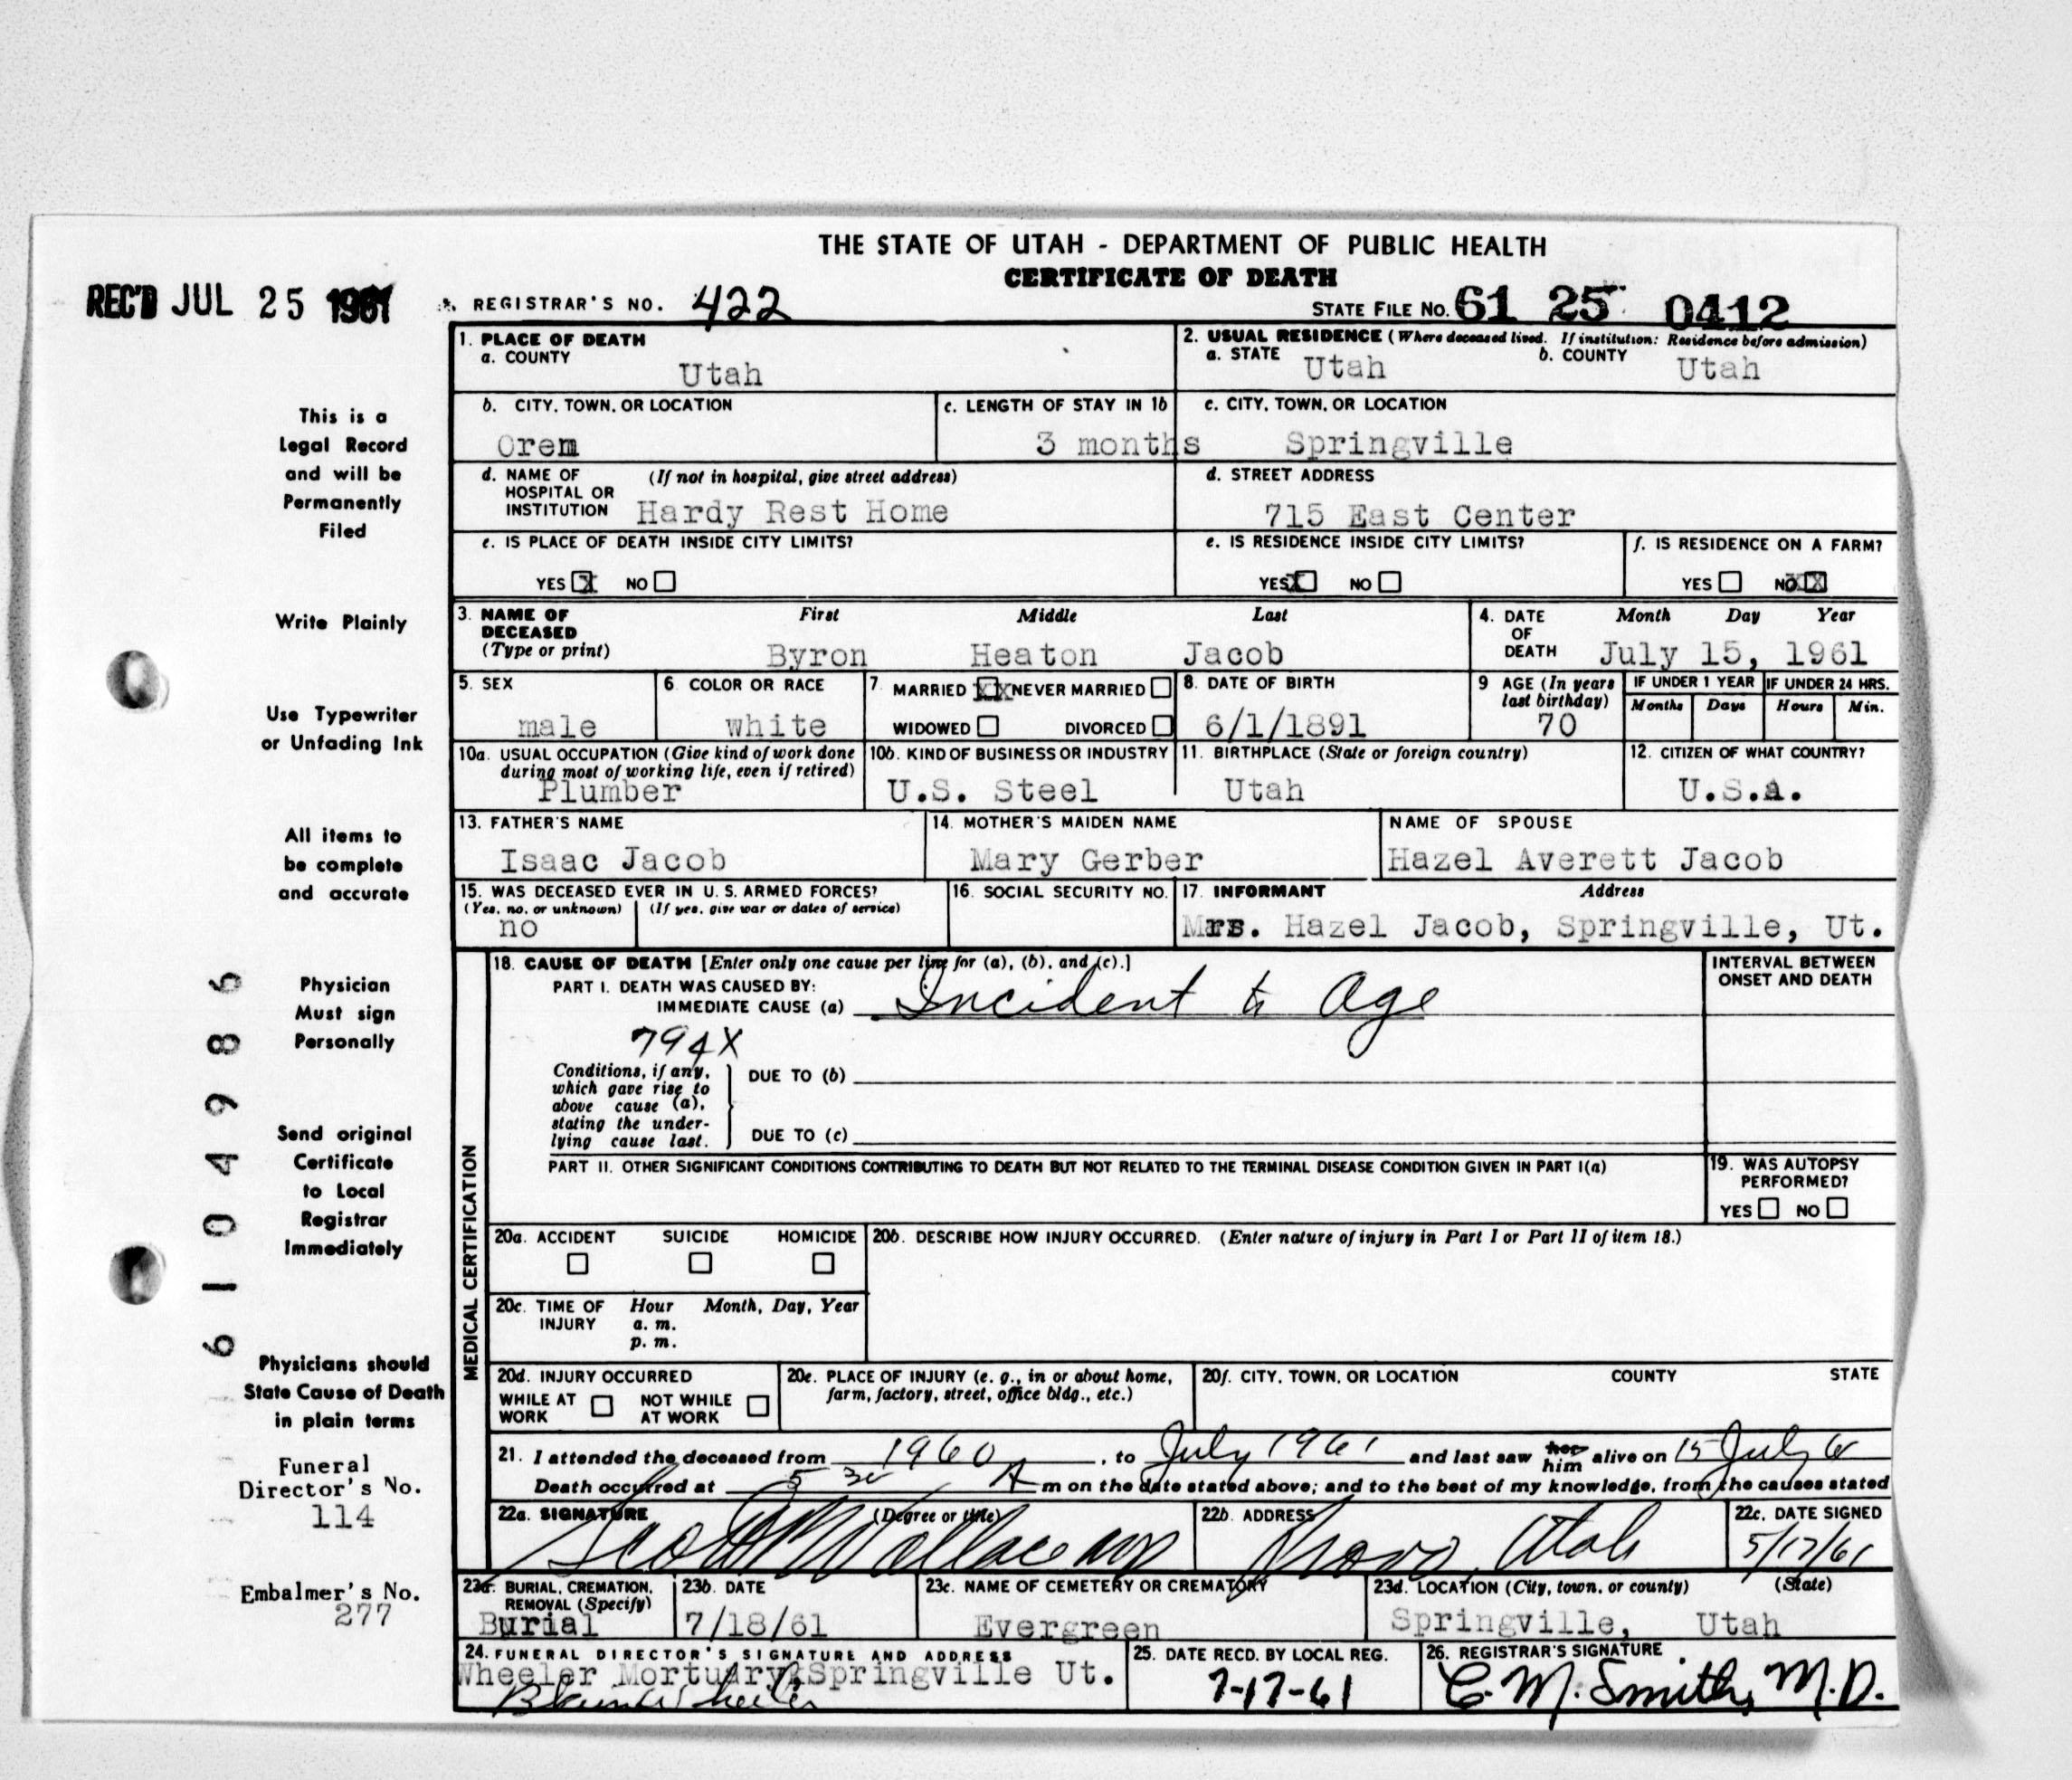 THE STATE OF UTAH - DEPARTMENT OF PUBLIC HEALTH
CERTIFICATE OF DEATH
REC'D JUL 25 1961
REGISTRAR'S NO. 422
STATE FILE NO. 61 25 0412
1. PLACE OF DEATH
a. COUNTY
Utah
2. USUAL RESIDENCE (Where deceased lived. If institution: Residence before admission)
a. STATE Utah b. COUNTY Utah
b. CITY, TOWN, OR LOCATION
Orem
c. LENGTH OF STAY IN 1b
3 months
c. CITY, TOWN, OR LOCATION
Springville
d. NAME OF HOSPITAL OR INSTITUTION (If not in hospital, give street address)
Hardy Rest Home
d. STREET ADDRESS
715 East Center
e. IS PLACE OF DEATH INSIDE CITY LIMITS?
YES X NO
e. IS RESIDENCE INSIDE CITY LIMITS?
YES X NO
f. IS RESIDENCE ON A FARM?
YES NO XX
3. NAME OF DECEASED (Type or print)
First Middle Last
Byron Heaton Jacob
4. DATE OF DEATH Month Day Year
July 15, 1961
5. SEX
male
6. COLOR OR RACE
white
7. MARRIED XX NEVER MARRIED
WIDOWED DIVORCED
8. DATE OF BIRTH
6/1/1891
9 AGE (In years last birthday)
70
IF UNDER 1 YEAR
Months Days
IF UNDER 24 HRS.
Hours Min.
10a. USUAL OCCUPATION (Give kind of work done during most of working life, even if retired)
Plumber
10b. KIND OF BUSINESS OR INDUSTRY
U.S. Steel
11. BIRTHPLACE (State or foreign country)
Utah
12. CITIZEN OF WHAT COUNTRY?
U.S.A.
13. FATHER'S NAME
Isaac Jacob
14. MOTHER'S MAIDEN NAME
Mary Gerber
NAME OF SPOUSE
Hazel Averett Jacob
15. WAS DECEASED EVER IN U.S. ARMED FORCES?
(Yes, no, or unknown) (If yes, give war or dates of service)
no
16. SOCIAL SECURITY NO.
17. INFORMANT Address
Mrs. Hazel Jacob, Springville, Ut.
MEDICAL CERTIFICATION
18. CAUSE OF DEATH [Enter only one cause per line for (a), (b), and (c).]
PART I. DEATH WAS CAUSED BY:
IMMEDIATE CAUSE (a) Incident to Age
794X
INTERVAL BETWEEN ONSET AND DEATH
Conditions, if any, which gave rise to above cause (a), stating the underlying cause last.
DUE TO (b)
DUE TO (c)
PART II. OTHER SIGNIFICANT CONDITIONS CONTRIBUTING TO DEATH BUT NOT RELATED TO THE TERMINAL DISEASE CONDITION GIVEN IN PART I(a)
19. WAS AUTOPSY PERFORMED?
YES NO
20a. ACCIDENT SUICIDE HOMICIDE
20b. DESCRIBE HOW INJURY OCCURRED. (Enter nature of injury in Part I or Part II of item 18.)
20c. TIME OF INJURY Hour Month, Day, Year
a. m.
p. m.
20d. INJURY OCCURRED
WHILE AT WORK NOT WHILE AT WORK
20e. PLACE OF INJURY (e. g., in or about home, farm, factory, street, office bldg., etc.)
20f. CITY, TOWN, OR LOCATION COUNTY STATE
21. I attended the deceased from 1960, to July 1961 and last saw her him alive on 15 July 61
Death occurred at 5 30 A m on the date stated above; and to the best of my knowledge, from the causes stated
22a. SIGNATURE (Degree or title)
22b. ADDRESS
Provo, Utah
22c. DATE SIGNED
5/17/61
23a. BURIAL, CREMATION, REMOVAL (Specify)
Burial
23b. DATE
7/18/61
23c. NAME OF CEMETERY OR CREMATORY
Evergreen
23d. LOCATION (City, town, or county) (State)
Springville, Utah
24. FUNERAL DIRECTOR'S SIGNATURE AND ADDRESS
Wheeler Mortuary, Springville Ut.
25. DATE RECD. BY LOCAL REG.
7-17-61
26. REGISTRAR'S SIGNATURE
C. M. Smith, M.D.
This is a
Legal Record
and will be
Permanently
Filed
Write Plainly
Use Typewriter
or Unfading Ink
All items to
be complete
and accurate
Physician
Must sign
Personally
Send original
Certificate
to Local
Registrar
Immediately
Physicians should
State Cause of Death
in plain terms
Funeral
Director's No.
114
Embalmer's No.
277
6104986